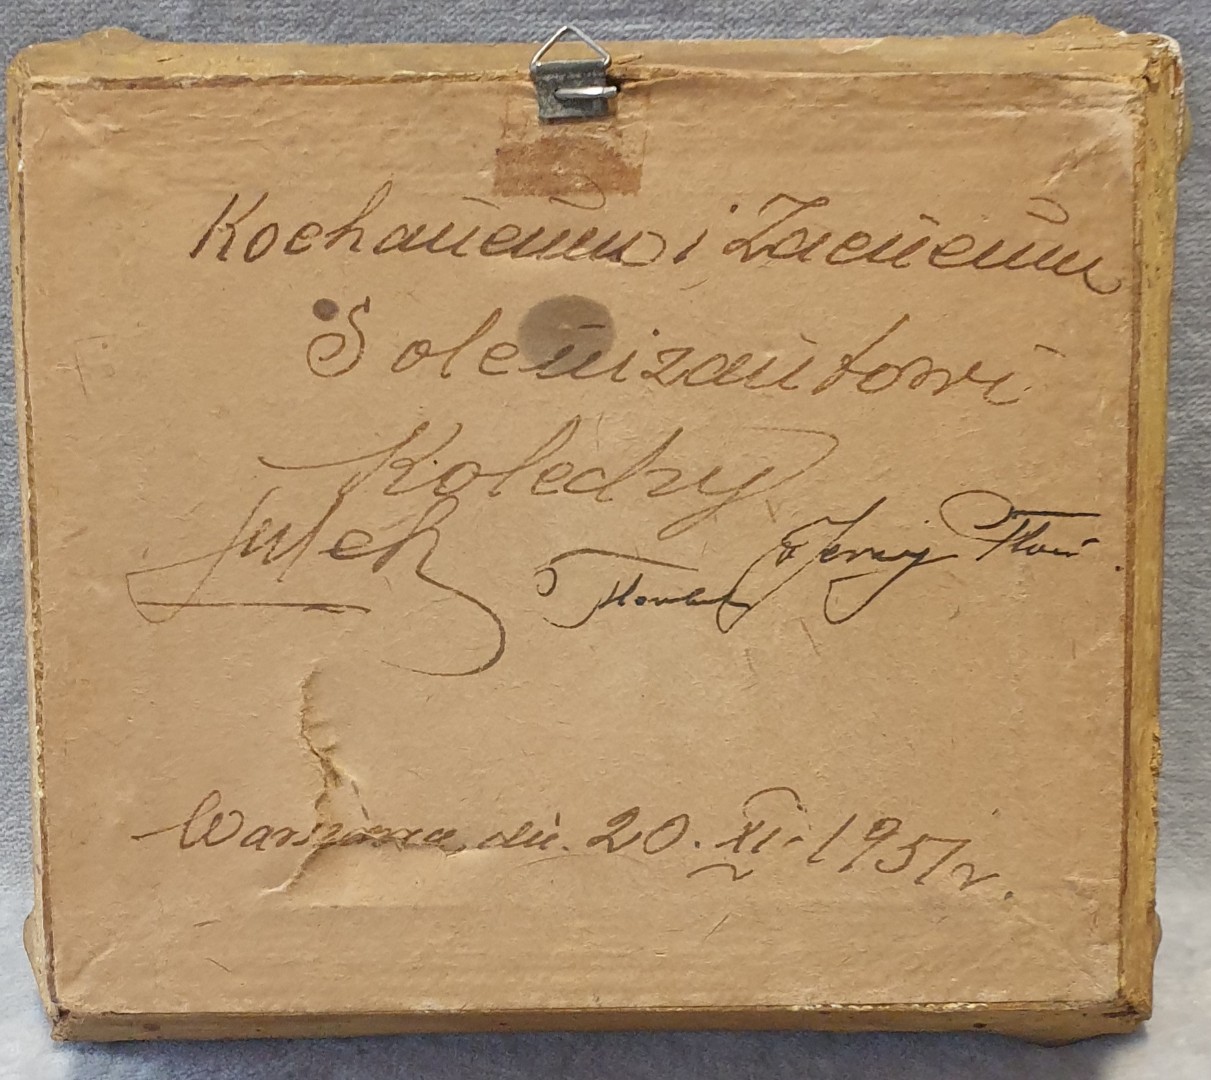 Kochanemu i Zacnemu
Solenizantowi
Koledzy
Julek Jerzy
Warszawa, dn. 20. XI. 1951 r.